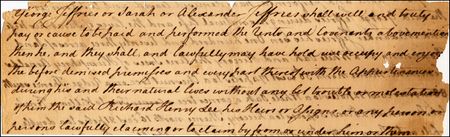 George Jeffries or Sarah or Alexander Jeffries shall well and truly
pay or cause to be paid and performed the Rents and Covenants abovementioned
then he and they shall and lawfully may have hold use occupy and enjoy
the before demised premisses and every part thereof with the Appurtenances
during his and their natural lives without any let trouble or molestation
of him the said Richard Henry Lee his Heirs or Assigns or any person or
persons lawfully claiming or to claim by form or under him or them